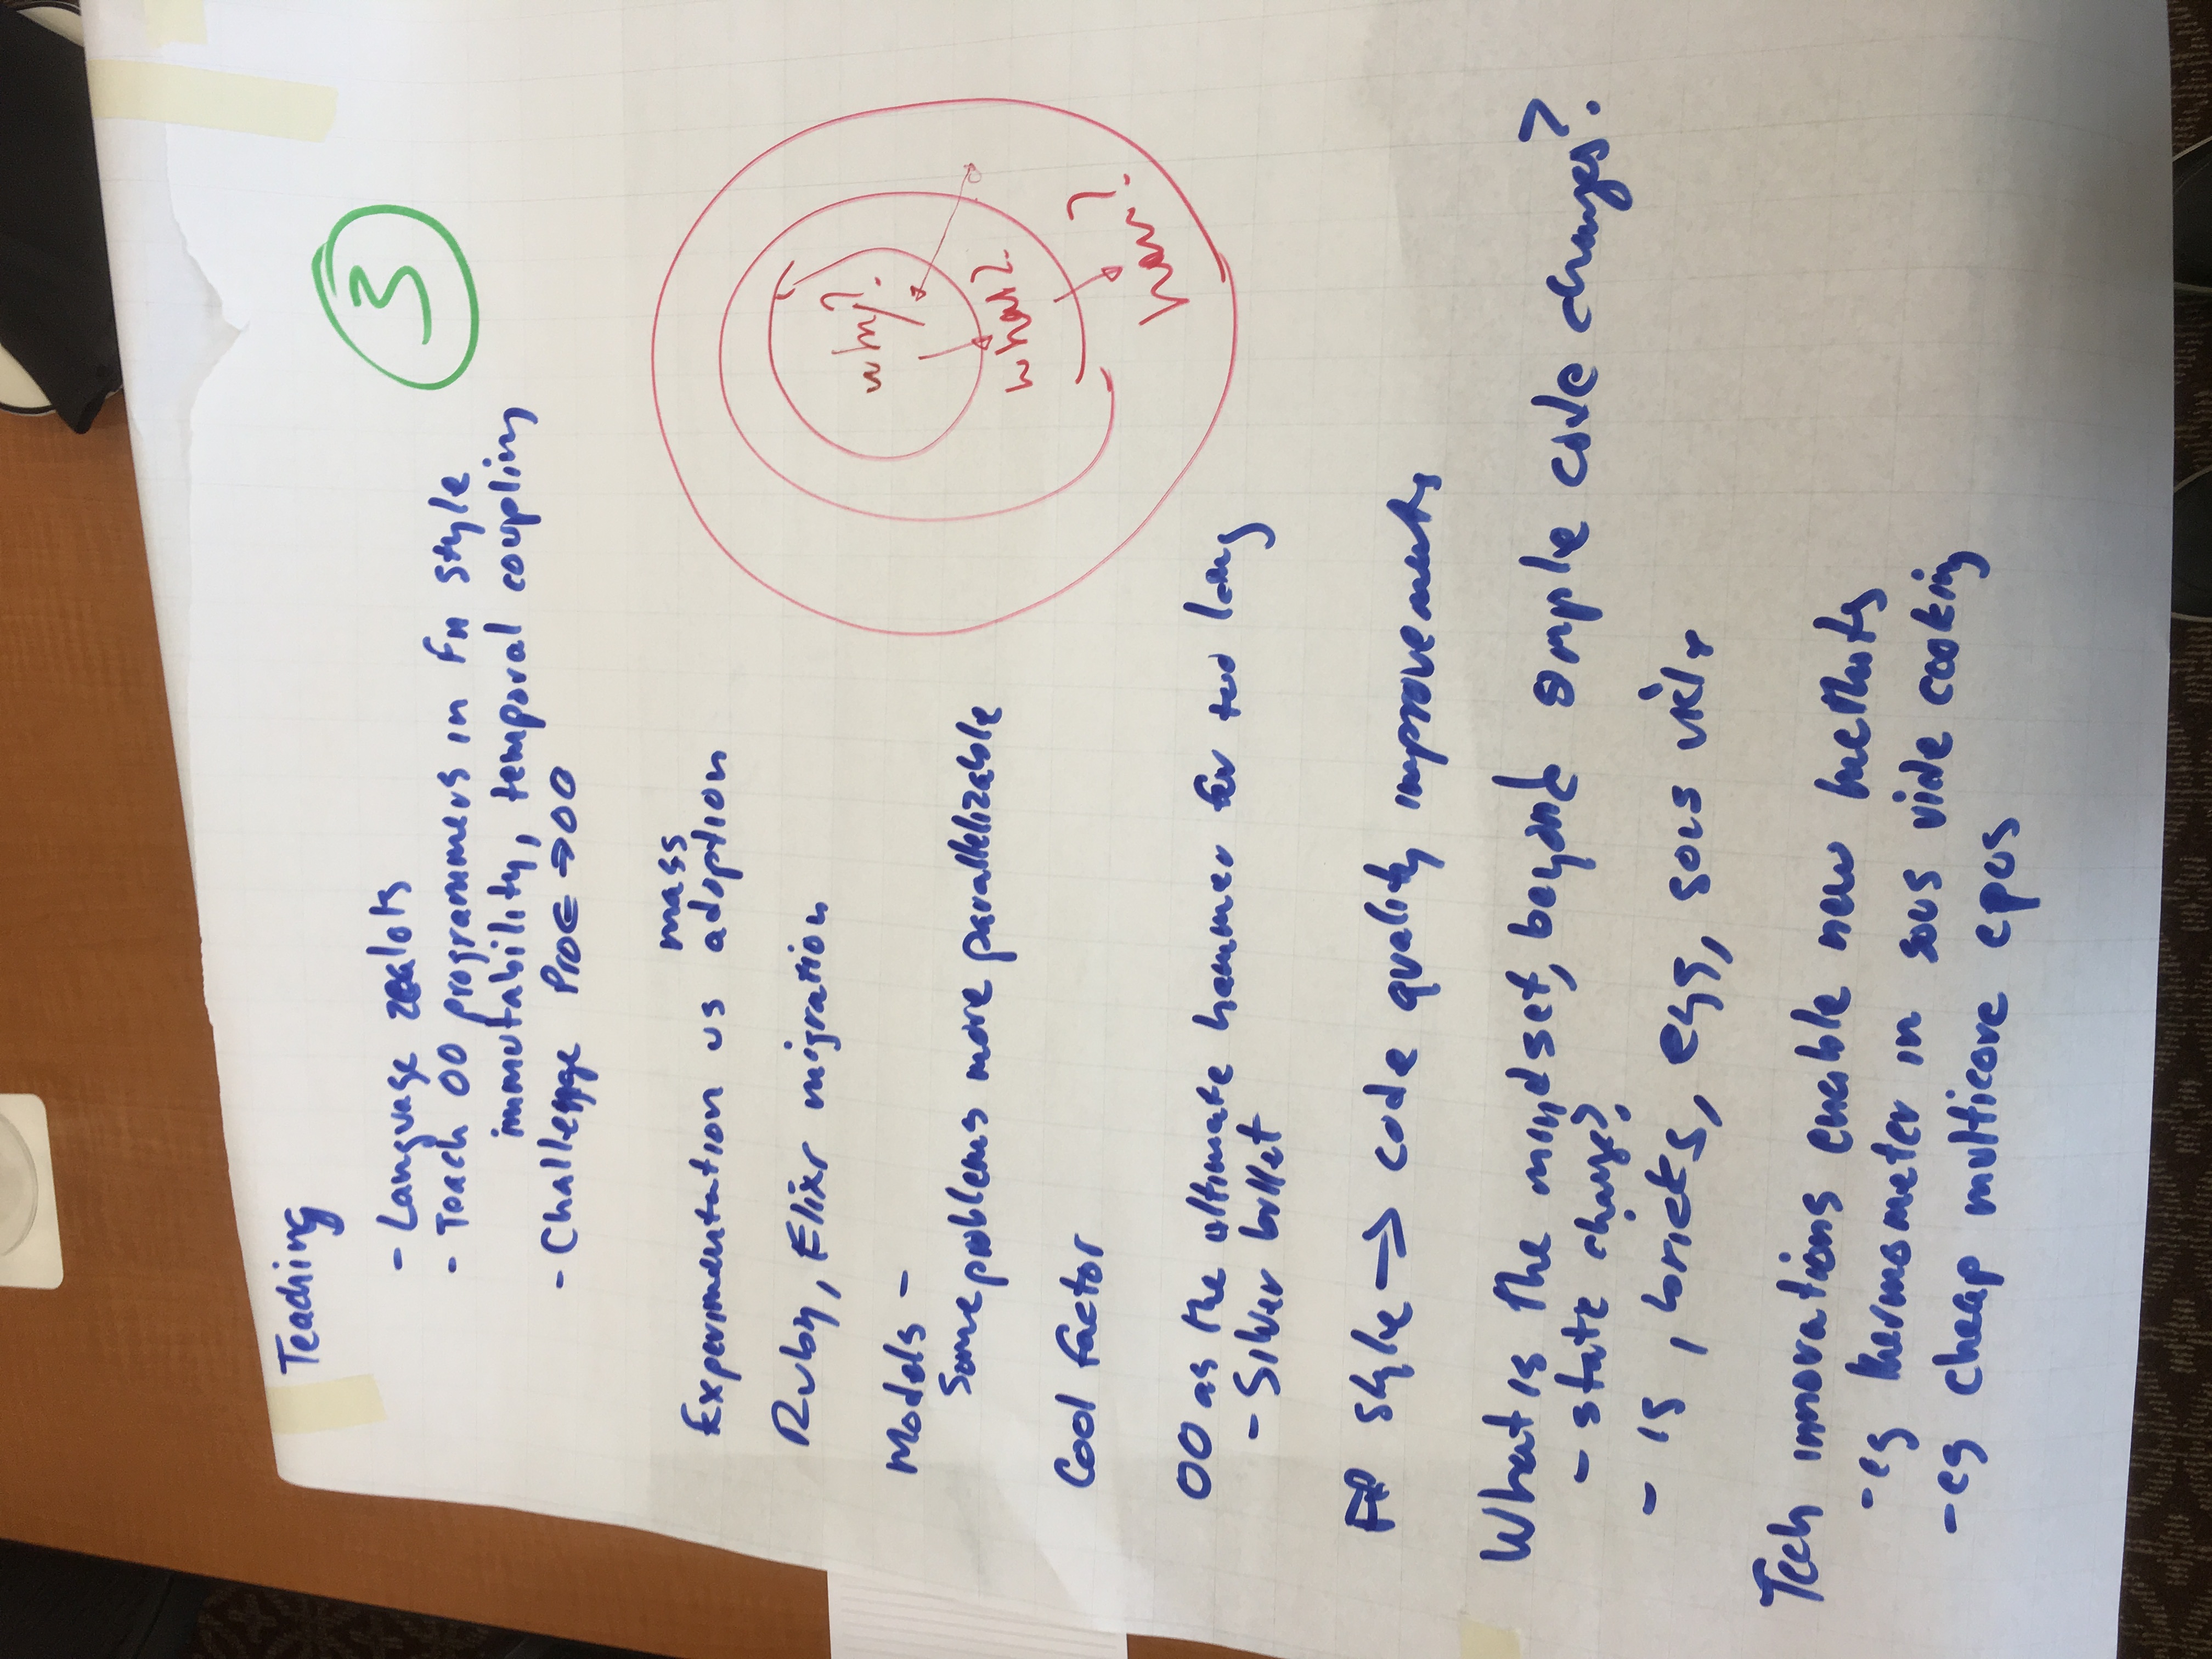 Teaching
3
- Language zealots
- Teach OO programmers in Fn style
immutability, temporal coupling
- Challenge Proc → OO
mass
Experimentation vs adoption
Ruby, Elixr migration
Models -
Some problems more parallelizable
why?
what?
how?
Cool factor
OO as the ultimate hammer for too long
- Silver bullet
FP style → code quality improvements
What is the mindset, beyond simple code changes?
- state change?
- is, bricks, egg, sous vide
Tech innovations enable new methods
- eg thermometer in sous vide cooking
- eg cheap multicore cpus